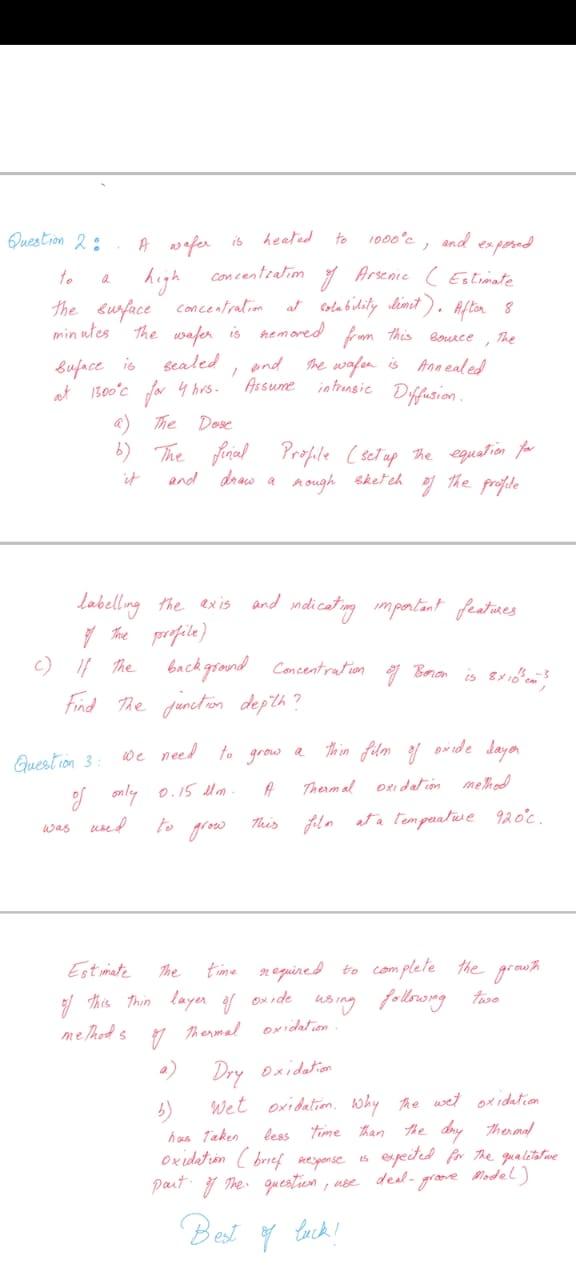 Question 2: . A wafer is heated to 1000°c, and exposed
to a high concentration of Arsenic ( Estimate
the surface concentration at solubility limit). After 8
minutes the wafer is removed from this source, the
suface is sealed, and the wafer is Annealed
at 1300°c for 4 hrs. Assume intrinsic Diffusion.
a) The Dose
b) The final Profile (setup the equation for
it and draw a rough sketch of the profile
labelling the axis and indicating important features
of the profile)
c) If the background Concentration of Boron is 8x10¹⁵cm⁻³,
Find The junction depth?
Question 3: we need to grow a thin film of oxide layer
of only 0.15 um. A Thermal oxidation method
was used to grow this film at a temperature 920°c.
Estimate the time required to complete the growth
of this thin layer of oxide using following two
methods of thermal oxidation.
a) Dry oxidation
b) Wet oxidation. Why the wet oxidation
has Taken less time than the dry thermal
oxidation ( brief response is expected for the qualitative
part of the question, use deal-groove Model)
Best of luck!